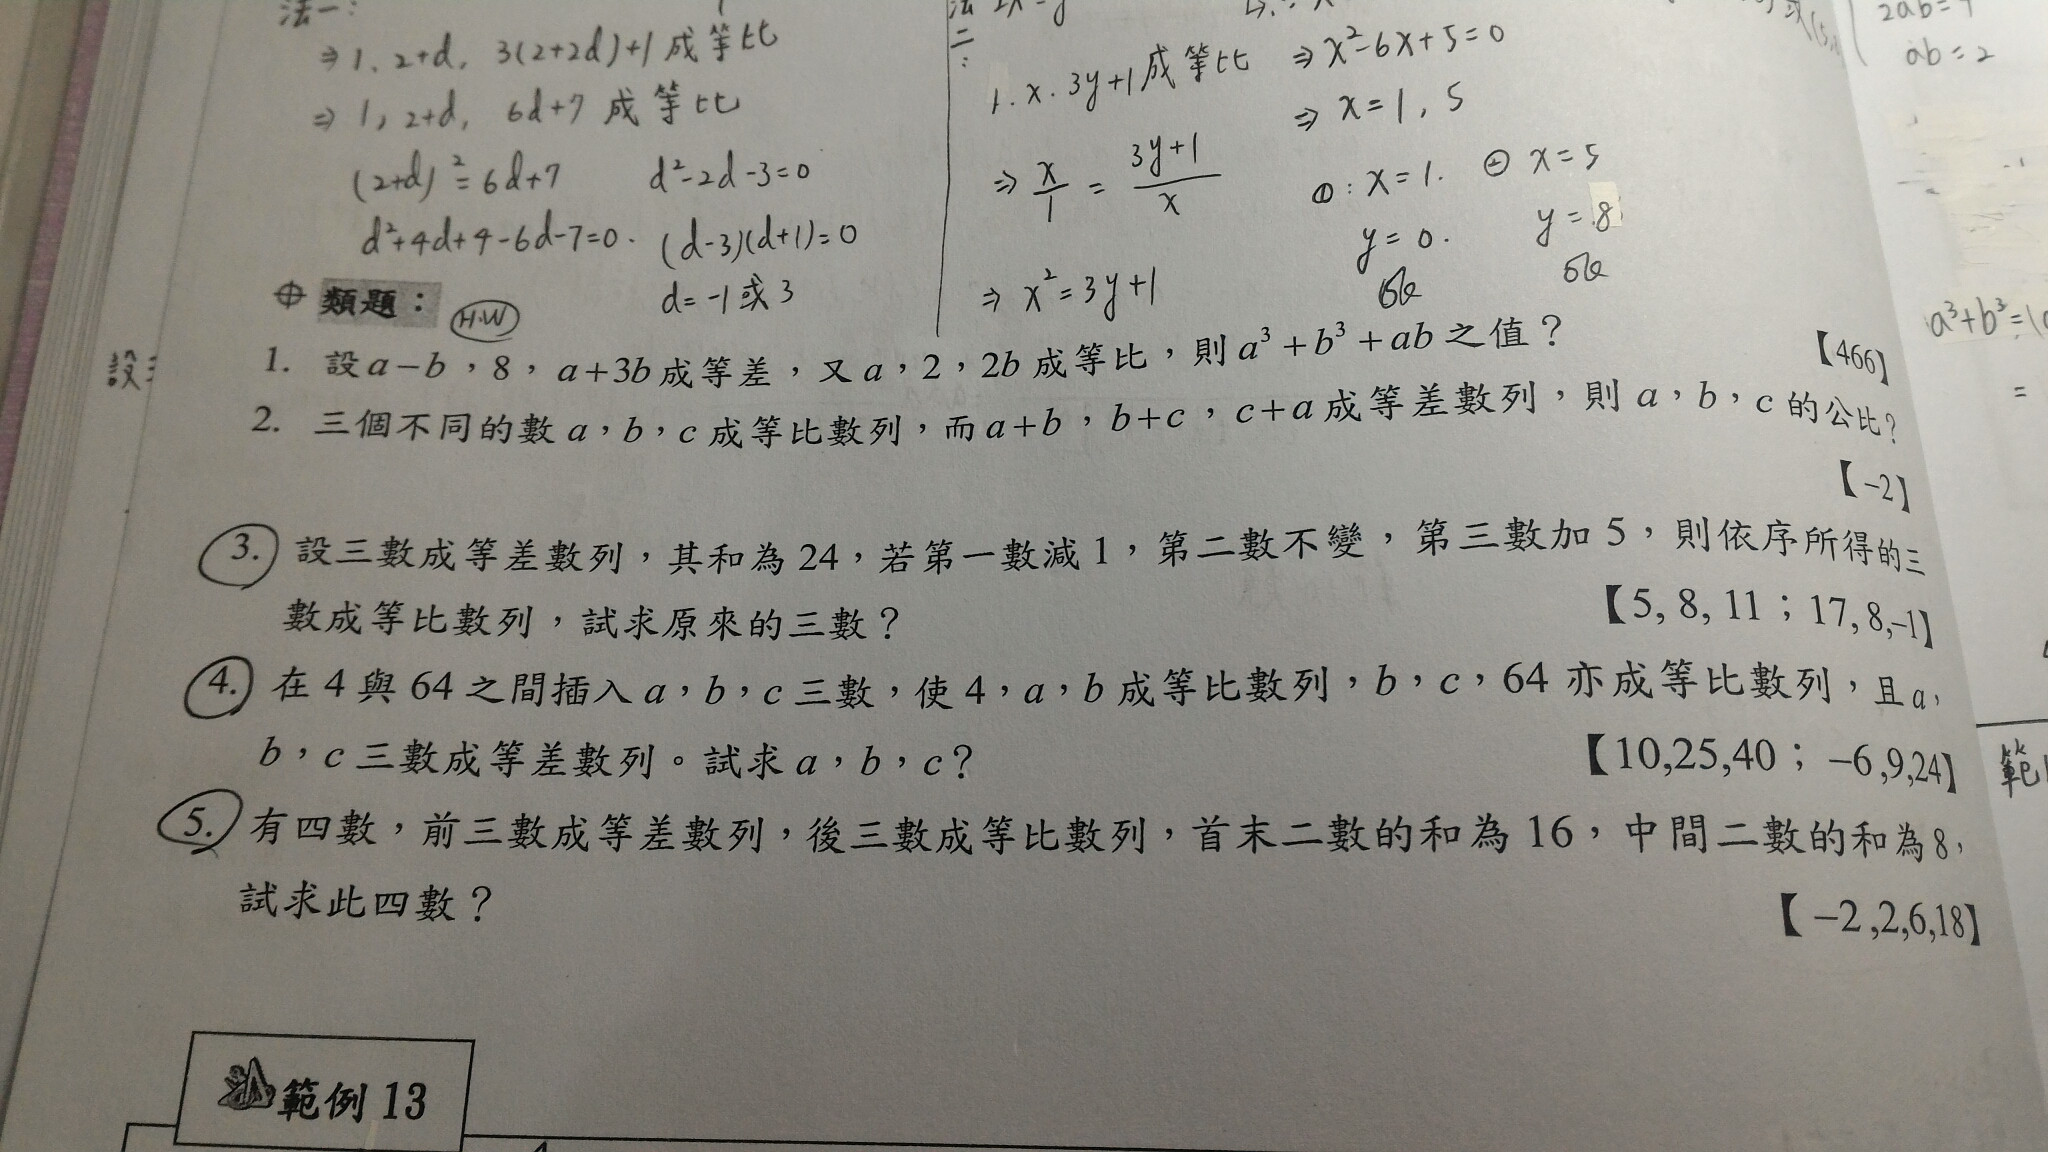 法一:
⇒ 1、2+d, 3(2+2d)+1 成等比
⇒ 1, 2+d, 6d+7 成等比
(2+d)²=6d+7
d²+4d+4-6d-7=0.
d²-2d-3=0
(d-3)(d+1)=0
d=-1或3
法二:
1.x.3y+1成等比
⇒ x/1 = (3y+1)/x
⇒ x²=3y+1
⇒ x²-6x+5=0
⇒ x=1, 5
①:x=1.
y=0.
② x=5
y=8
2ab=4
ab=2
類題:
H.W
1. 設a-b,8,a+3b成等差,又a,2,2b成等比,則a³+b³+ab之值?
【466】
2. 三個不同的數a,b,c成等比數列,而a+b,b+c,c+a成等差數列,則a,b,c的公比?
【-2】
3. 設三數成等差數列,其和為24,若第一數減1,第二數不變,第三數加5,則依序所得的三
數成等比數列,試求原來的三數?
【5, 8, 11;17, 8,-1】
4. 在4與64之間插入a,b,c三數,使4,a,b成等比數列,b,c,64亦成等比數列,且a,
b,c三數成等差數列。試求a,b,c?
【10,25,40;-6,9,24】
5. 有四數,前三數成等差數列,後三數成等比數列,首末二數的和為16,中間二數的和為8,
試求此四數?
【-2,2,6,18】
範例13
設
a³+b³=
=
範